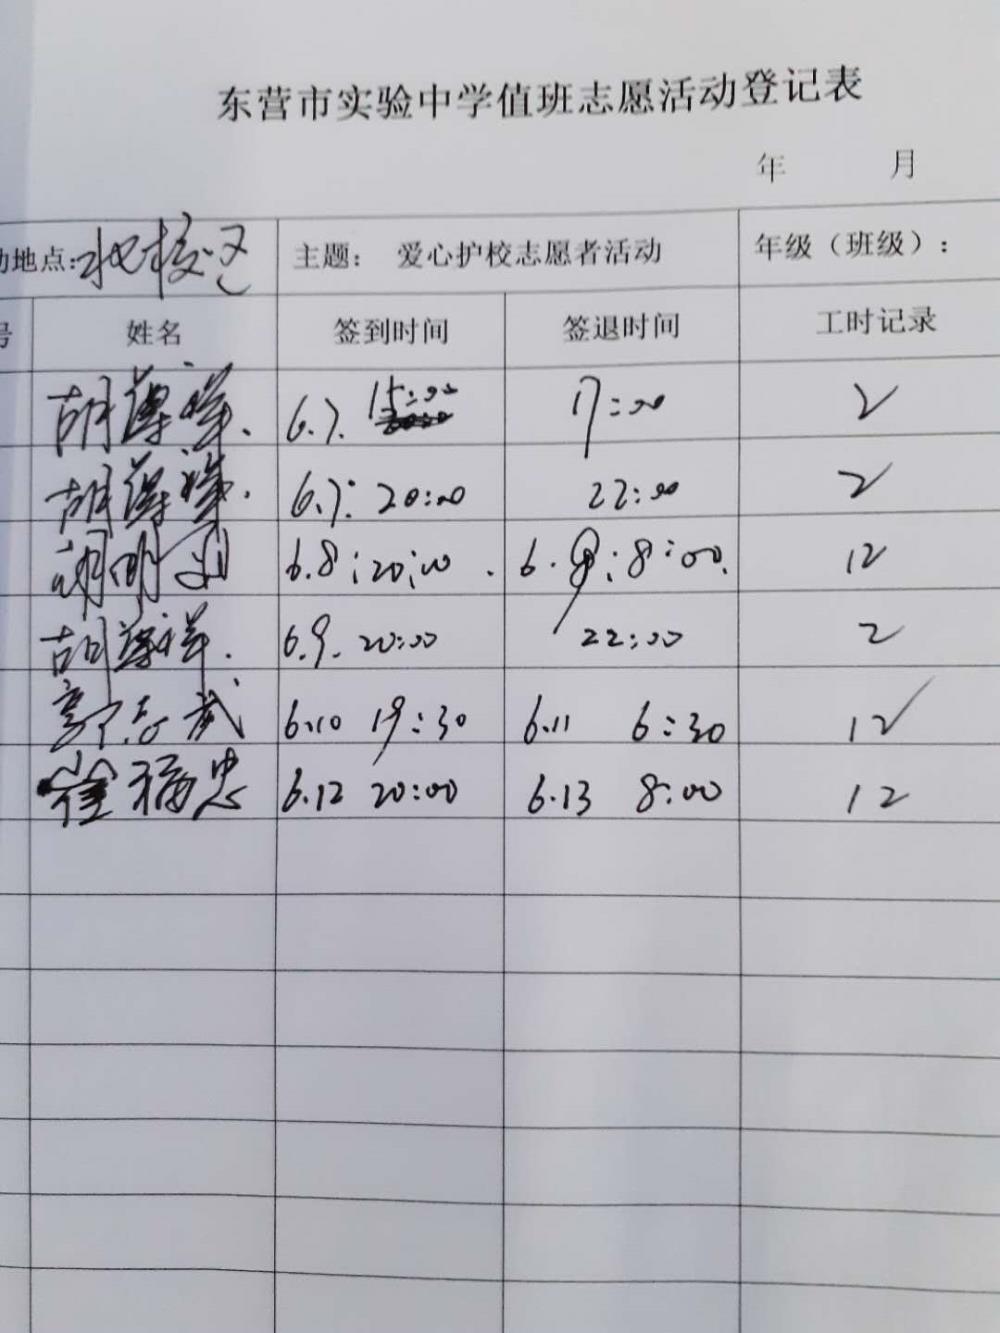 东营市实验中学值班志愿活动登记表
年 月
动地点: 北校区 主题: 爱心护校志愿者活动 年级（班级）:
号 姓名 签到时间 签退时间 工时记录
胡尊祥. 6.7. 15:00 17:00 2
胡尊祥. 6.7: 20:00 22:00 2
胡明 6.8:20:00. 6.9:8:00. 12
胡尊祥. 6.9. 20:00 22:00 2
郭志武 6.10 19:30 6.11 6:30 12
崔福忠 6.12 20:00 6.13 8:00 12